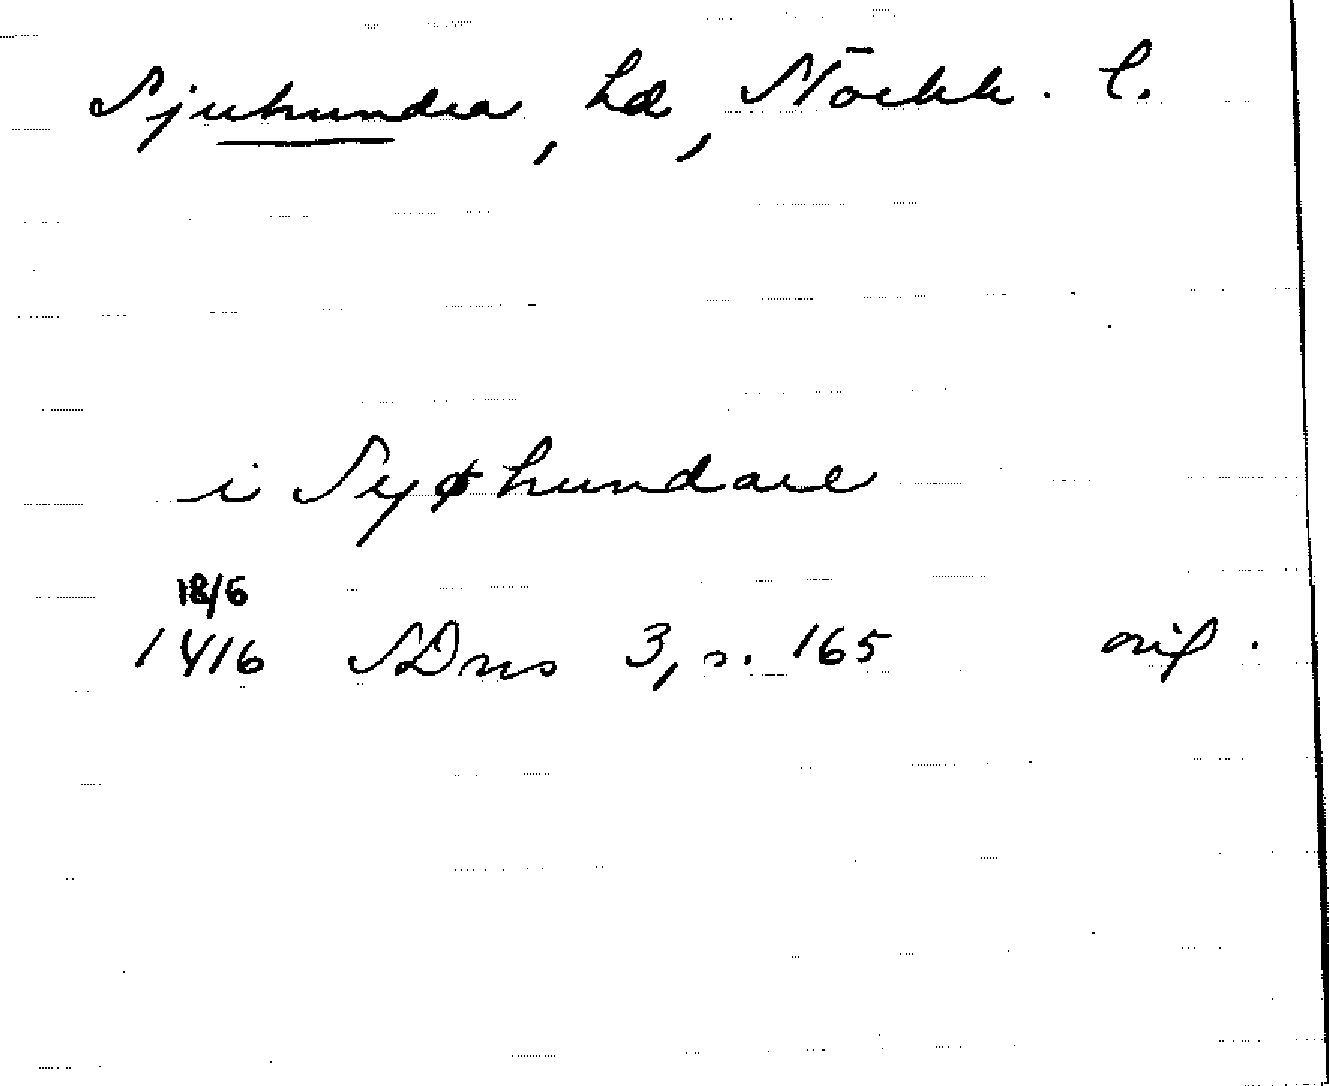 Sjuhundra, hd, Stockh. l.
i Syøhundare
18/6
1416 SDns 3, s. 165 orig.